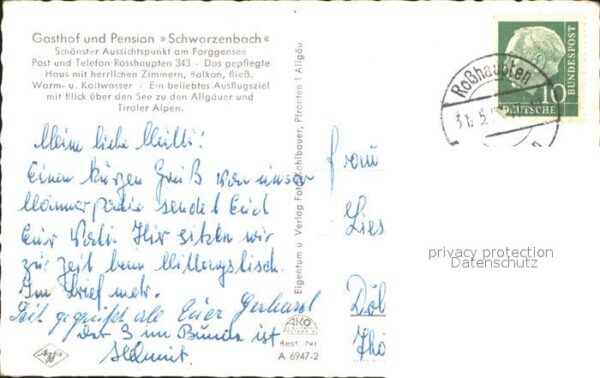 Gasthof und Pension »Schwarzenbach«
Schönster Aussichtspunkt am Forggensee
Post und Telefon Rosshaupten 343 - Das gepflegte
Haus mit herrlichen Zimmern, Balkon, fließ.
Warm- u. Kaltwasser - Ein beliebtes Ausflugsziel
mit Blick über den See zu den Allgäuer und
Tiroler Alpen.
Meine liebe
Einen kurzen Gruß von unser
Männerpartie sendet Euch
Euer Vati. Hier sitzen wir
zur Zeit beim Mittagstisch.
Im Brief mehr.
Seit gegrüßt als Euer Gerhard
der 3 im Bunde ist
Helmut.
Eigentum u Verlag Foto Kohlbauer, Pfronten 1 Allgäu
AKO
Best. Nr
A 6947-2
Agfa
Frau
Lies
Döb
Tho
Roßhaupten
31.5.
10
DEUTSCHE
BUNDESPOST
privacy protection
Datenschutz